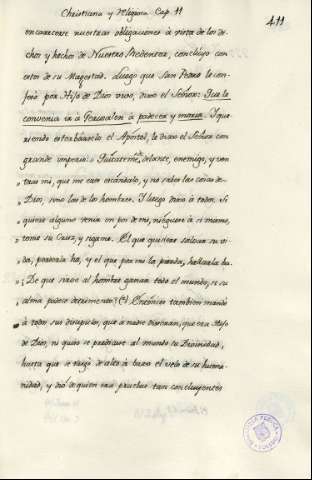 Christiana y Religiosa. Cap. 11
411
encarecerse nuestras obligaciones à vista de los de-
chos y hechos de Nuestro Redentor, concluyo con
estos de su Magestad. Luego que San Pedro le con-
fesó por Hijo de Dios vivo, dixo el Señor: Que le
convenia ir à Jerusalen à padecer y morir. Y que-
riendo estorbarselo el Apóstol, le dixo el Señor con
grande imperio: Quitateme delante, enemigo, y ven
tras mi, que me eres escándalo, y no sabes las cosas de
Dios, sino las de los hombres. Y luego dixo à todos: Si
quiere alguno venir en pos de mi, nieguese à si mismo,
tome su Cruz, y sigame. El que quisiere salvar su vi-
da, perderla ha, y el que por mi la pierda, hallarla ha.
De que sirve al hombre ganar todo el mundo, si su
alma padece detrimento? El Unico tambien mandó
à todos sus discipulos, que à nadie dixeran, que era Hijo
de Dios, ni quiso se predicase al mundo su Divinidad,
hasta que se rasgó de alto à baxo el velo de su huma-
nidad, y dió de quien era pruebas tan concluyentes